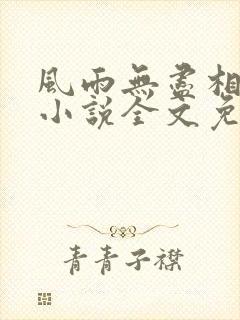 風雨無盡相
小說全文免
青青子襟